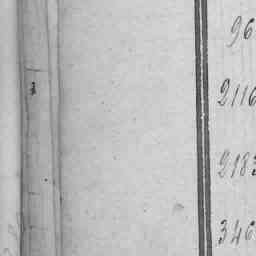 96
2116
2183
346